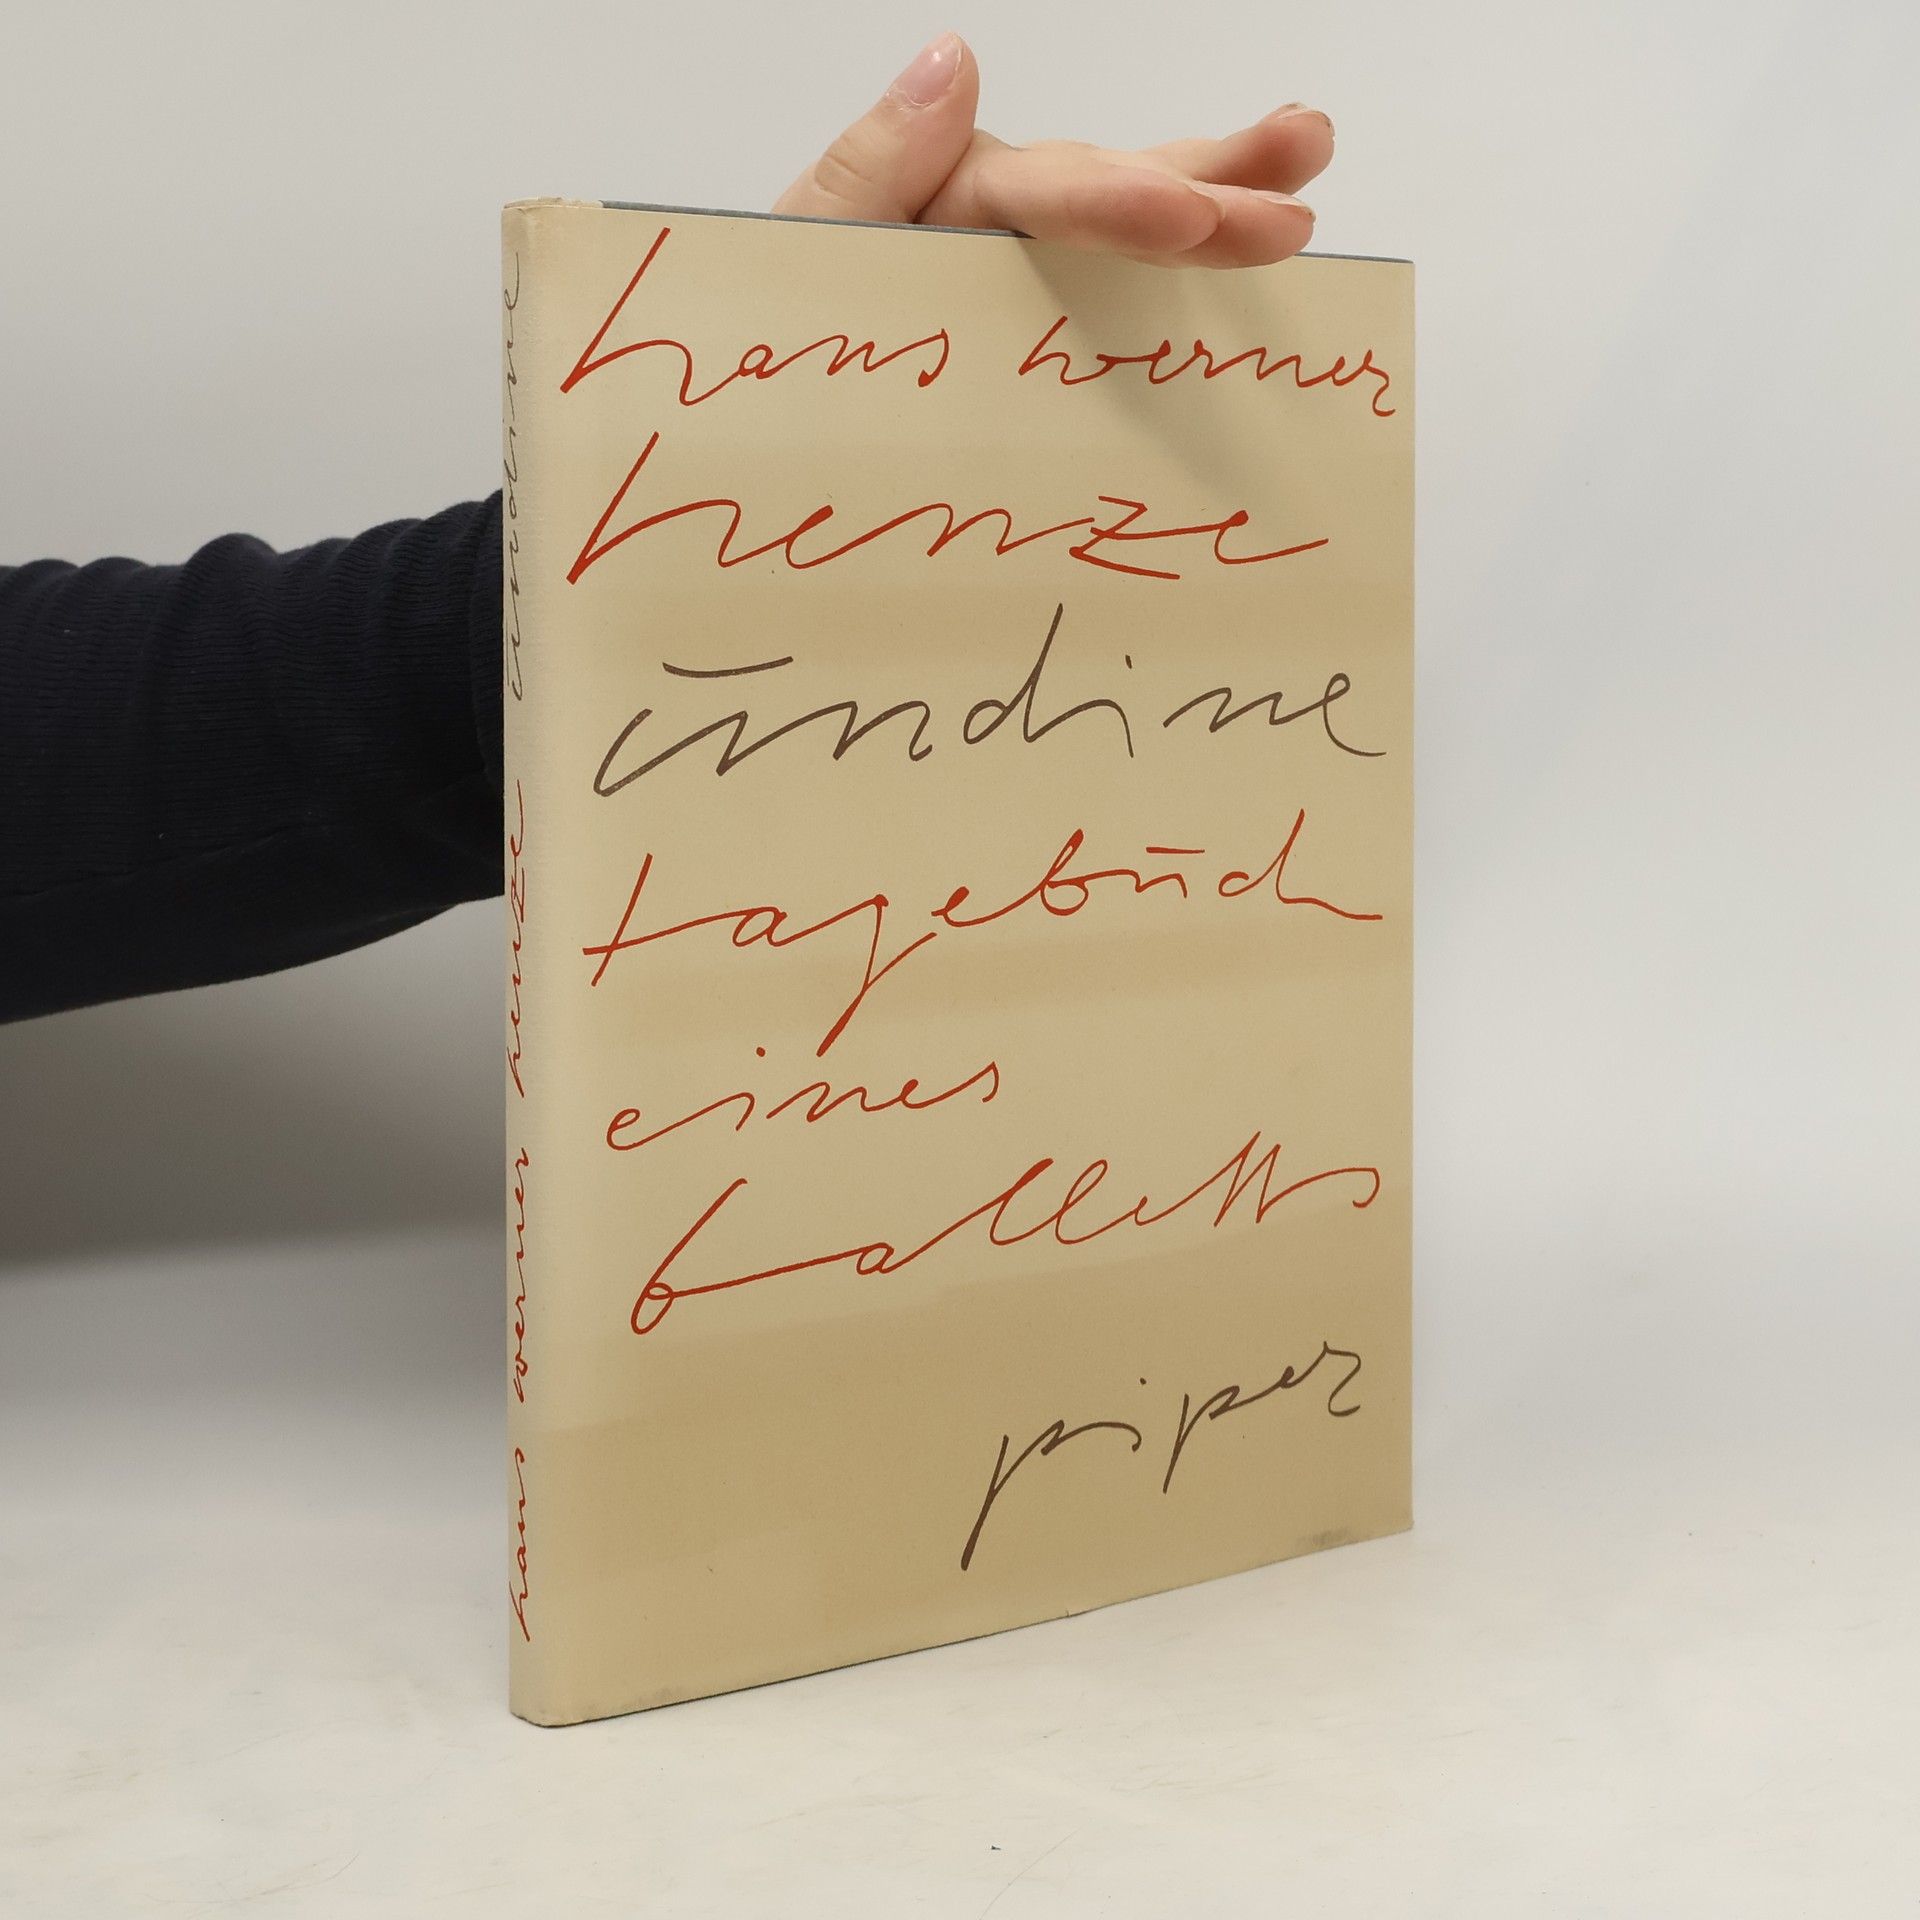 hans werner
henze
undine
tagebuch
eines
balletts
piper
hans werner henze undine